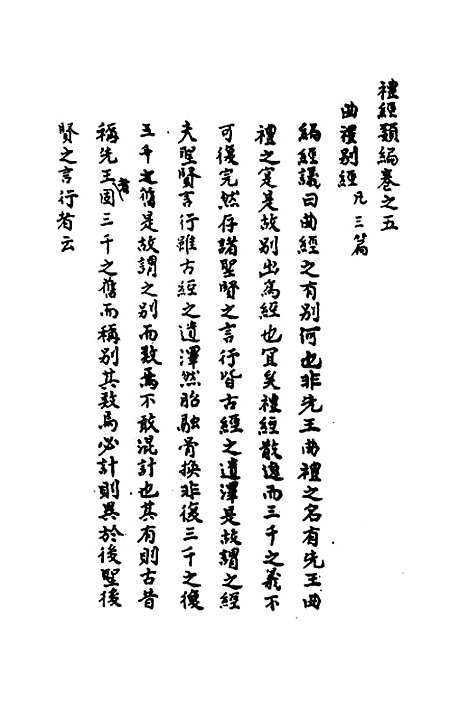 禮經類編卷之五
曲禮別經 凡三篇
編經議曰曲經之有別何也非先王曲禮之名有先王曲
禮之寔是故別出為經也冝矣禮經散逸而三千之義不
可復完然存諸聖賢之言行皆古經之遺澤是故謂之經
夫聖賢言行雖古經之遺澤然胎融骨換非復三千之復
三千之舊是故謂之別而致焉不敢混計也其有則古昔
稱先王者固三千之舊而稱別其致焉必計則異於後聖後
賢之言行者云